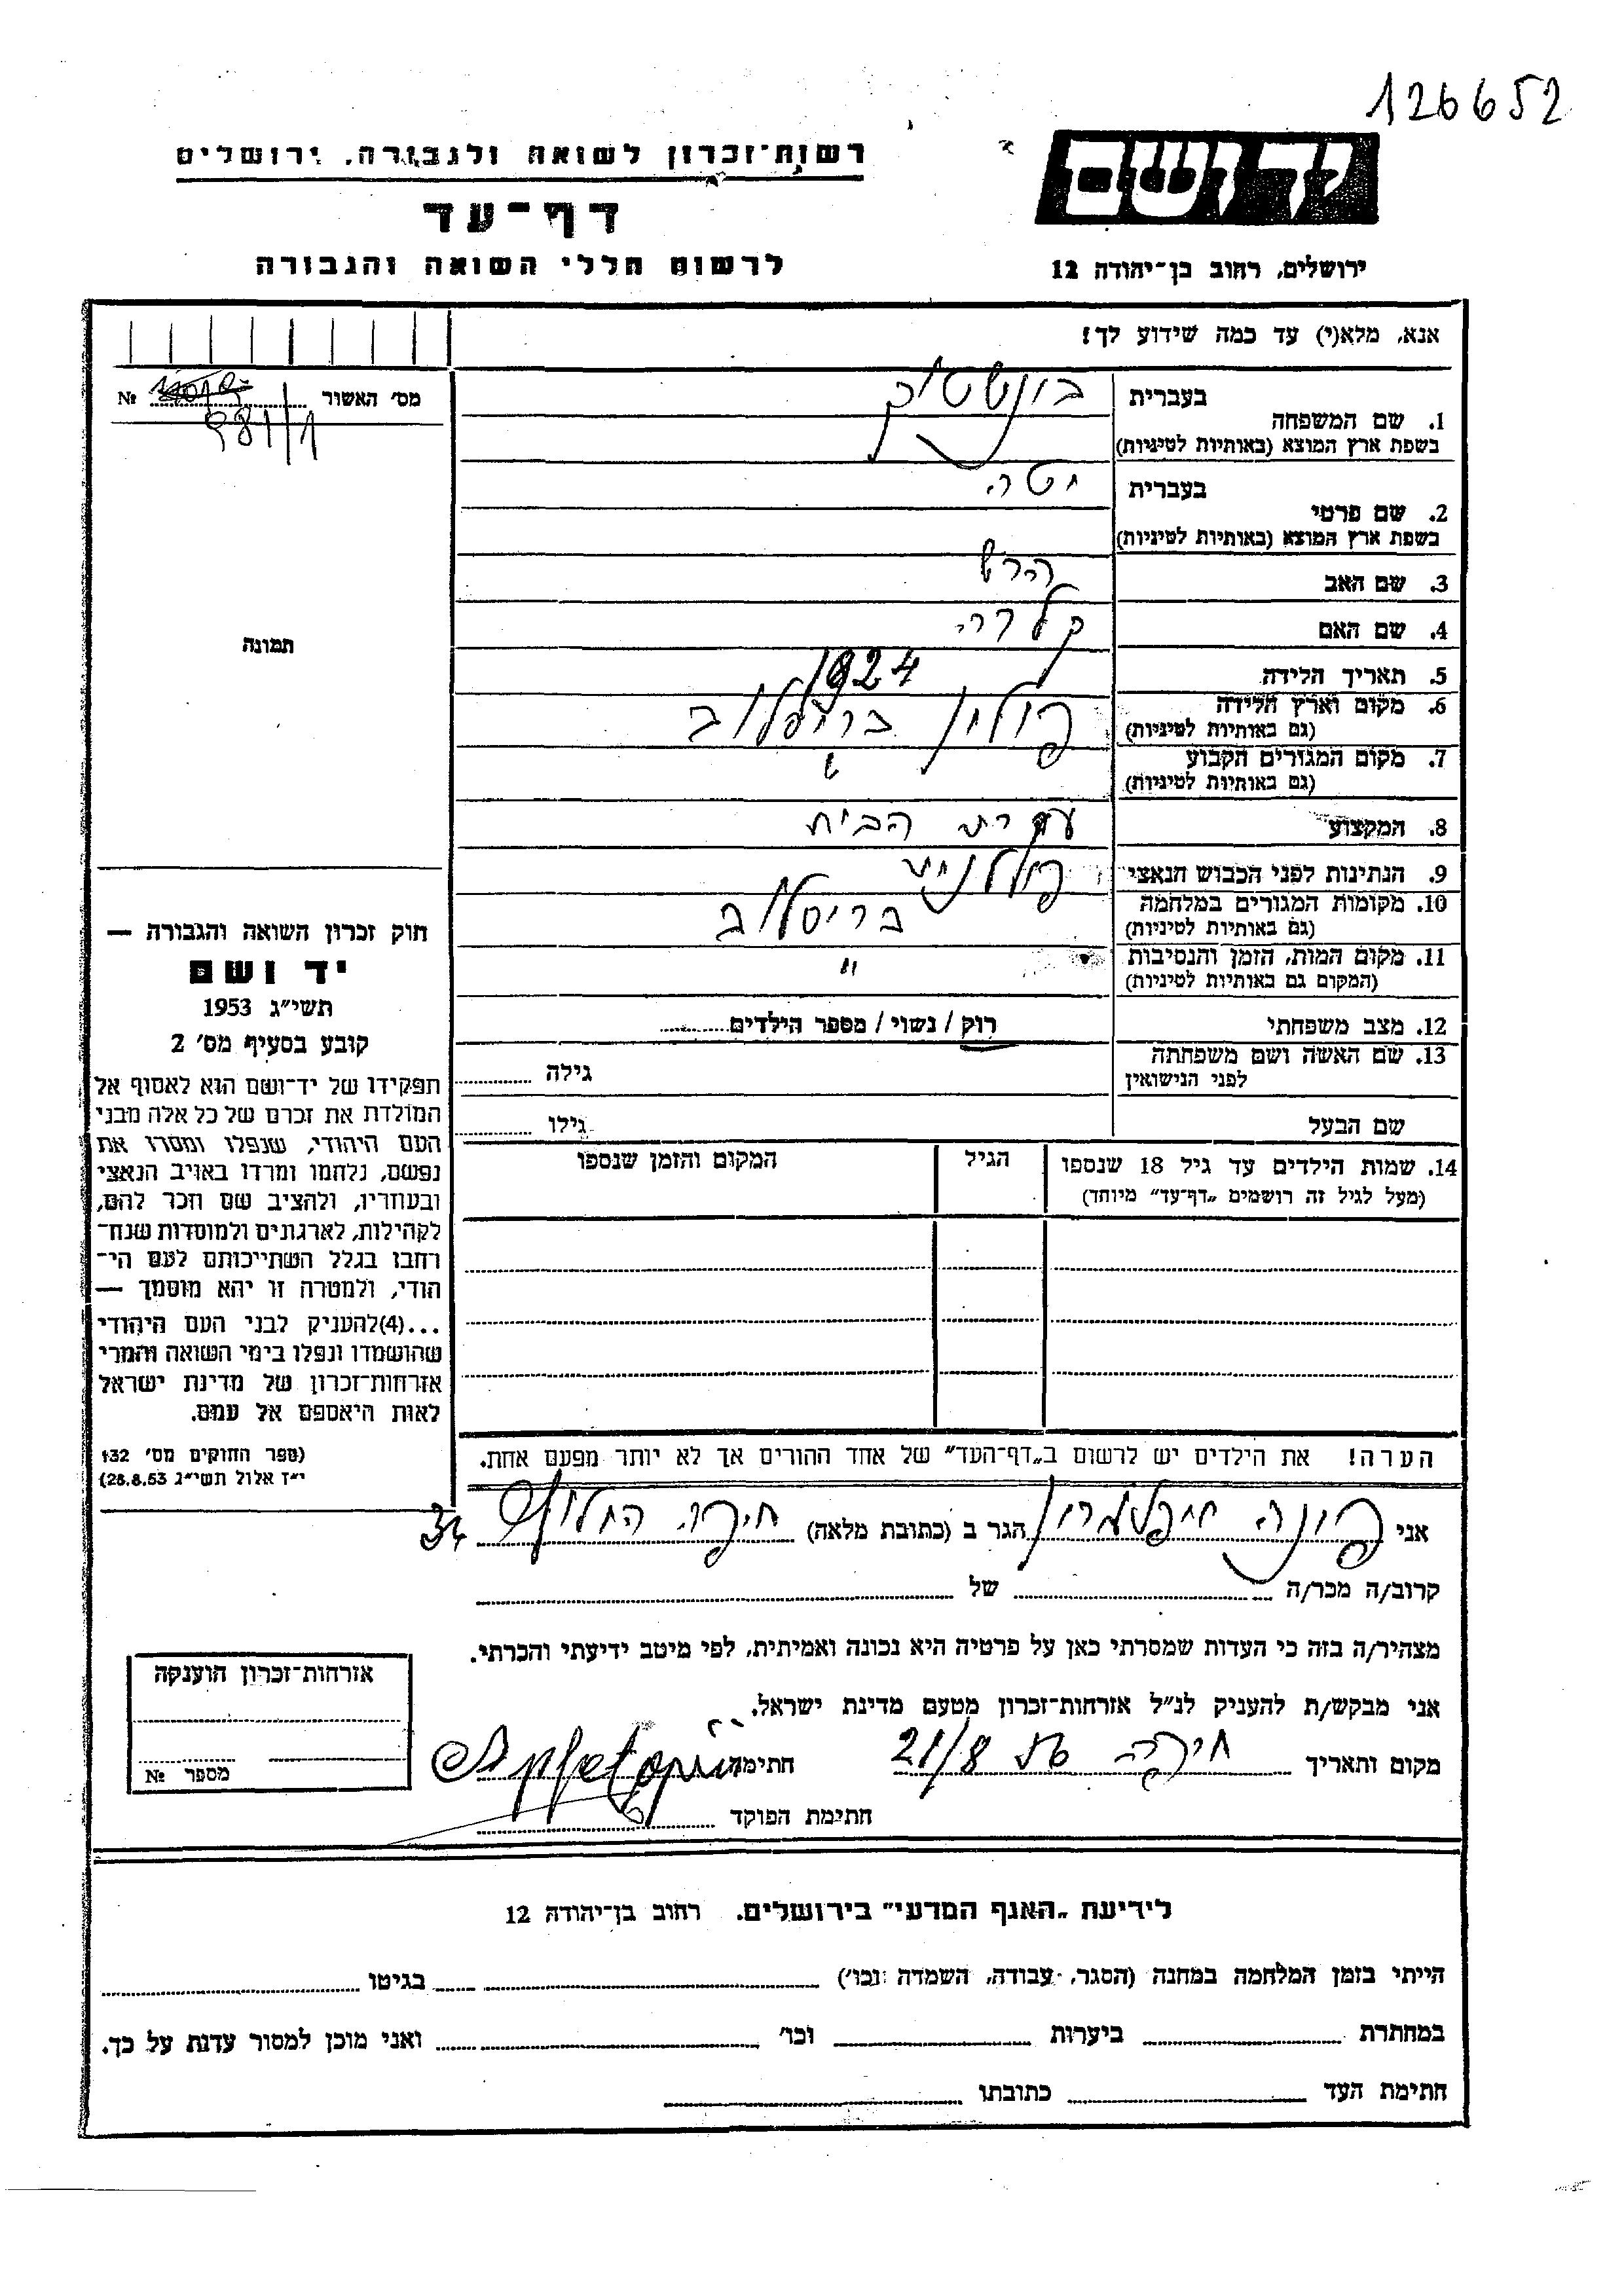 126652
יד ושם
רשות־זכרון לשואה ולגבורה, ירושלים
דף־עד
לרשום חללי השואה והגבורה
ירושלים, רחוב בן־יהודה 12
אנא, מלא(י) עד כמה שידוע לך!
מס' האשור № 981/1
1. שם המשפחה בעברית בונשטיק
בשפת ארץ המוצא (באותיות לטיניות)
2. שם פרטי בעברית יטה
בשפת ארץ המוצא (באותיות לטיניות)
3. שם האב הרש
4. שם האם
5. תאריך הלידה 1924
6. מקום וארץ הלידה פולין
(גם באותיות לטיניות)
7. מקום המגורים הקבוע "
(גם באותיות לטיניות)
8. המקצוע עקרת הבית
9. הנתינות לפני הכבוש הנאצי
10. מקומות המגורים במלחמה
(גם באותיות לטיניות)
11. מקום המות, הזמן והנסיבות "
(המקום גם באותיות לטיניות)
12. מצב משפחתי רוק / נשוי / מספר הילדים
13. שם האשה ושם משפחתה גילה
לפני הנישואין
שם הבעל גילו
14. שמות הילדים עד גיל 18 שנספו הגיל המקום והזמן שנספו
(מעל לגיל זה רושמים „דף־עד" מיוחד)
הערה! את הילדים יש לרשום ב„דף־העד" של אחד ההורים אך לא יותר מפעם אחת.
תמונה
חוק זכרון השואה והגבורה —
יד ושם
תשי"ג 1953
קובע בסעיף מס' 2
תפקידו של יד־ושם הוא לאסוף אל
המולדת את זכרם של כל אלה מבני
העם היהודי, שנפלו ומסרו את
נפשם, נלחמו ומרדו באויב הנאצי
ובעוזריו, ולהציב שם וזכר להם,
לקהילות, לארגונים ולמוסדות שנח־
רבו בגלל השתייכותם לעם הי־
הודי, ולמטרה זו יהא מוסמך —
...(4)להעניק לבני העם היהודי
שהושמדו ונפלו בימי השואה והמרי
אזרחות־זכרון של מדינת ישראל
לאות היאספם אל עמם.
(ספר החוקים מס' 132
י"ז אלול תשי"ג 28.8.53)
אני הגר ב (כתובת מלאה) חיפה החלוץ 34
קרוב/ה מכר/ה של
מצהיר/ה בזה כי העדות שמסרתי כאן על פרטיה היא נכונה ואמיתית, לפי מיטב ידיעתי והכרתי.
אני מבקש/ת להעניק לנ"ל אזרחות־זכרון מטעם מדינת ישראל.
מקום ותאריך חיפה 21/8 חתימה
חתימת הפוקד
אזרחות־זכרון הוענקה
מספר №
לידיעת „האגף המדעי" בירושלים. רחוב בן־יהודה 12
הייתי בזמן המלחמה במחנה (הסגר, עבודה, השמדה וכו') בגיטו
במחתרת ביערות וכו' ואני מוכן למסור עדות על כך.
חתימת העד כתובתו